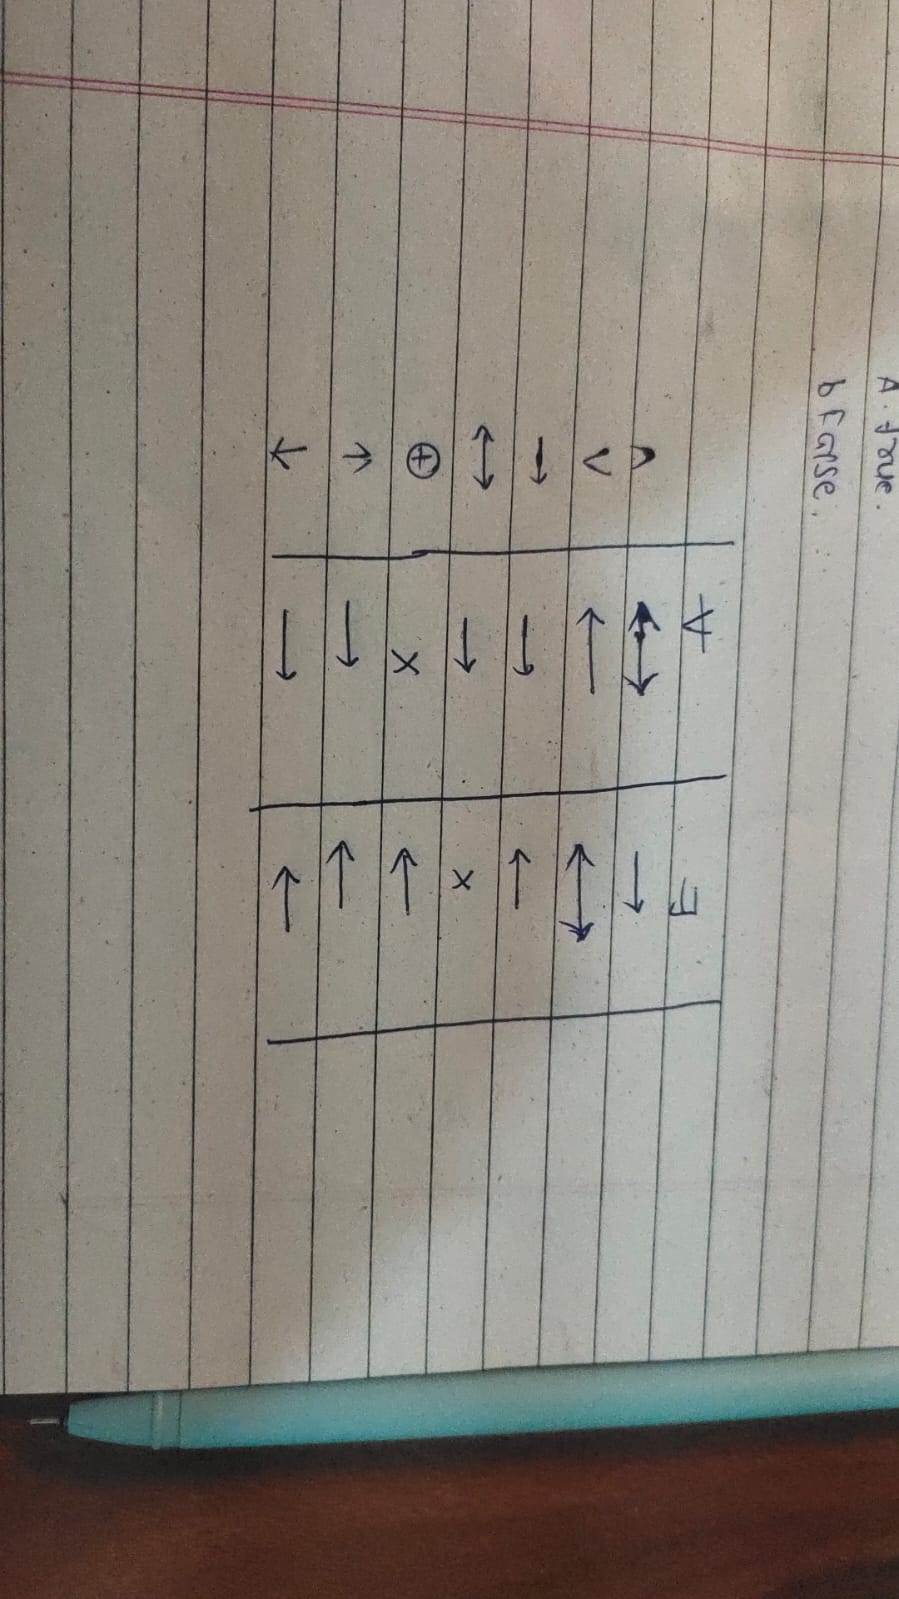 A. True.
b False.
∀ ∃
∧ ↔ →
∨ ← ↔
→ → ←
↔ → x
⊕ x ←
↑ → ←
↓ → ←